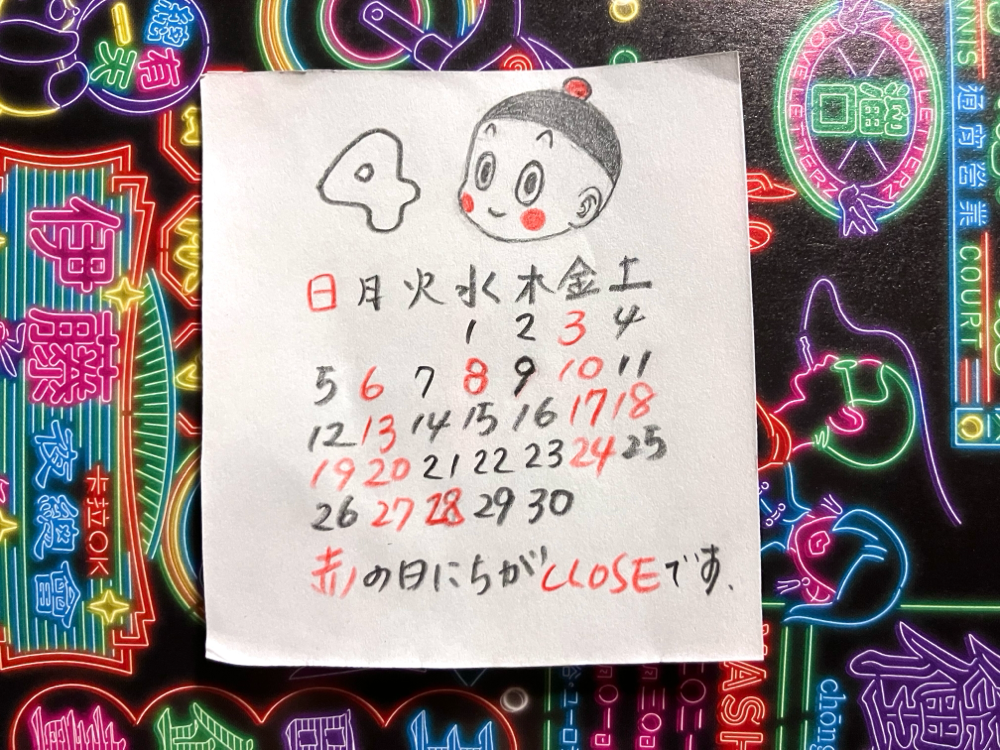 4
日 月 火 水 木 金 土
1 2 3 4
5 6 7 8 9 10 11
12 13 14 15 16 17 18
19 20 21 22 23 24 25
26 27 28 29 30
赤の日にちがCLOSEです.
有
一天
伊藤
夜總會
卡拉OK
LOVE LETTERZ
LOVE LETTERZ
湎口
NNIS 通宵営業 COURT
chong